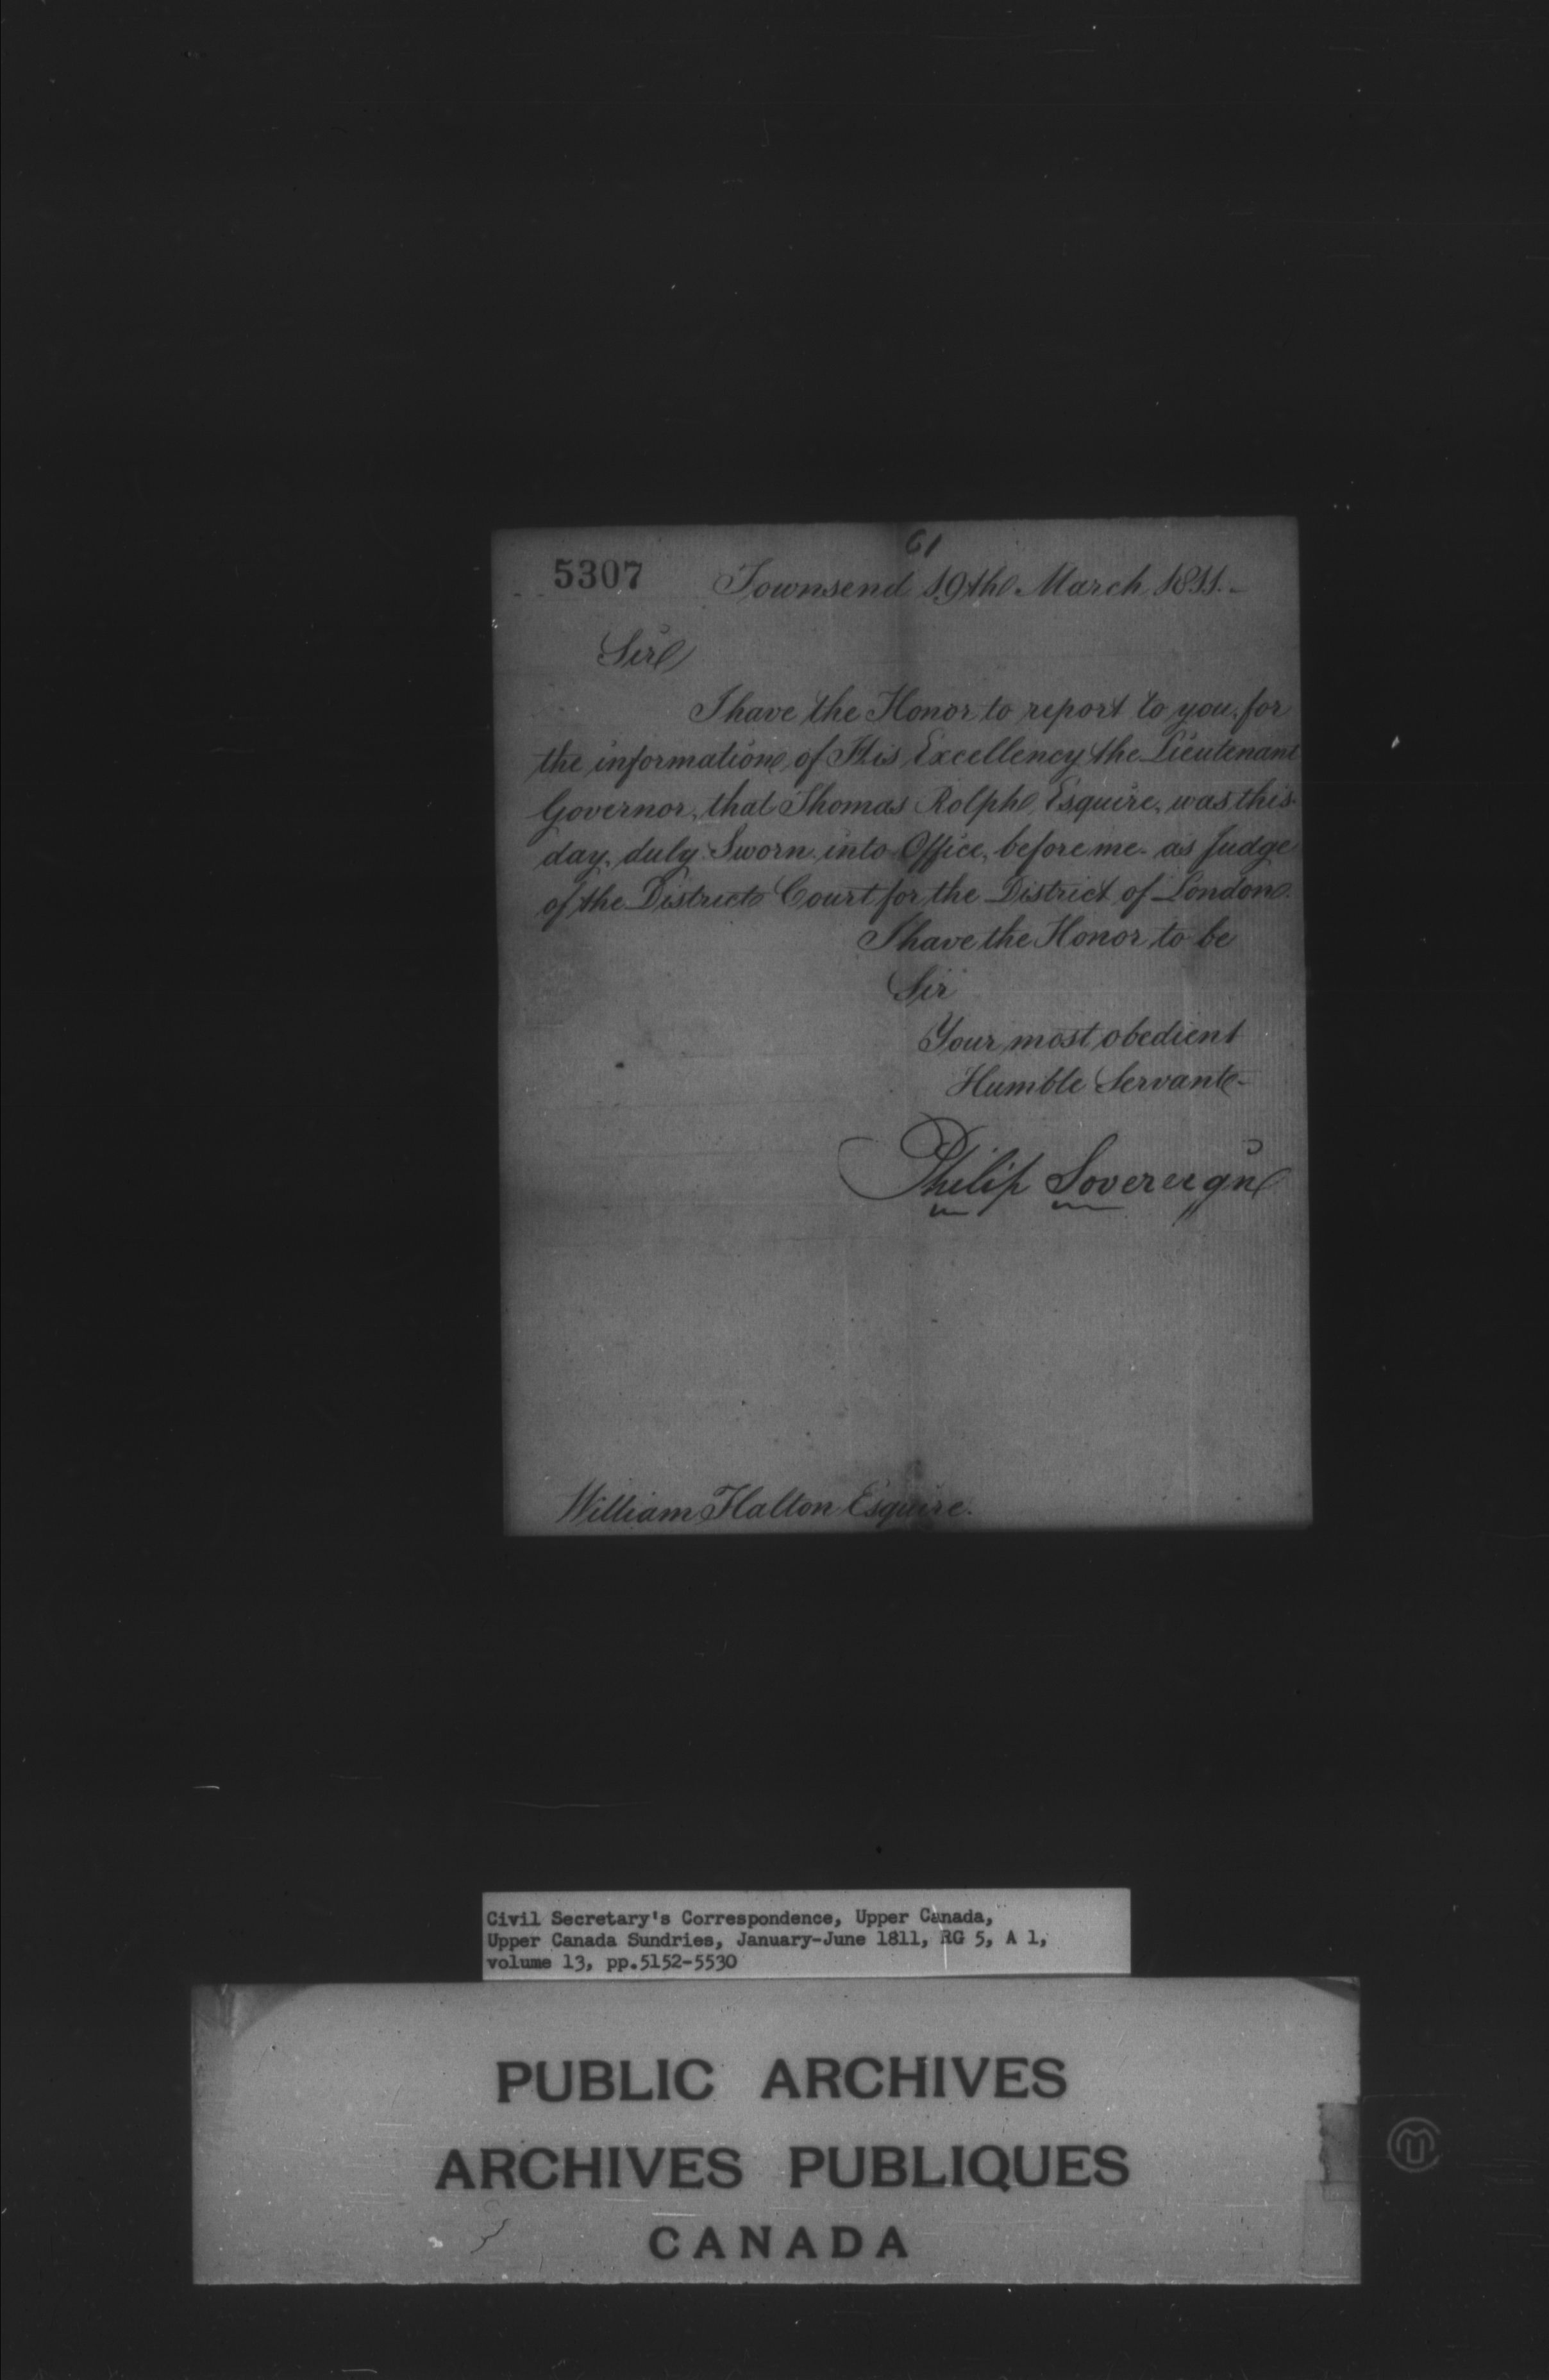 61
5307 Townsend 19th March 1811.-
Sir
I have the Honor to report to you, for
the information, of His Excellency the Lieutenant
Governor, that Thomas Rolph Esquire, was this
day, duly Sworn into Office, before me as Judge
of the District Court for the District of London.
I have the Honor to be
Sir
Your most obedient
Humble Servant-
Philip Sovereign
William Halton Esquire.
Civil Secretary's Correspondence, Upper Canada,
Upper Canada Sundries, January-June 1811, RG 5, A 1,
volume 13, pp.5152-5530
PUBLIC ARCHIVES
ARCHIVES PUBLIQUES
CANADA